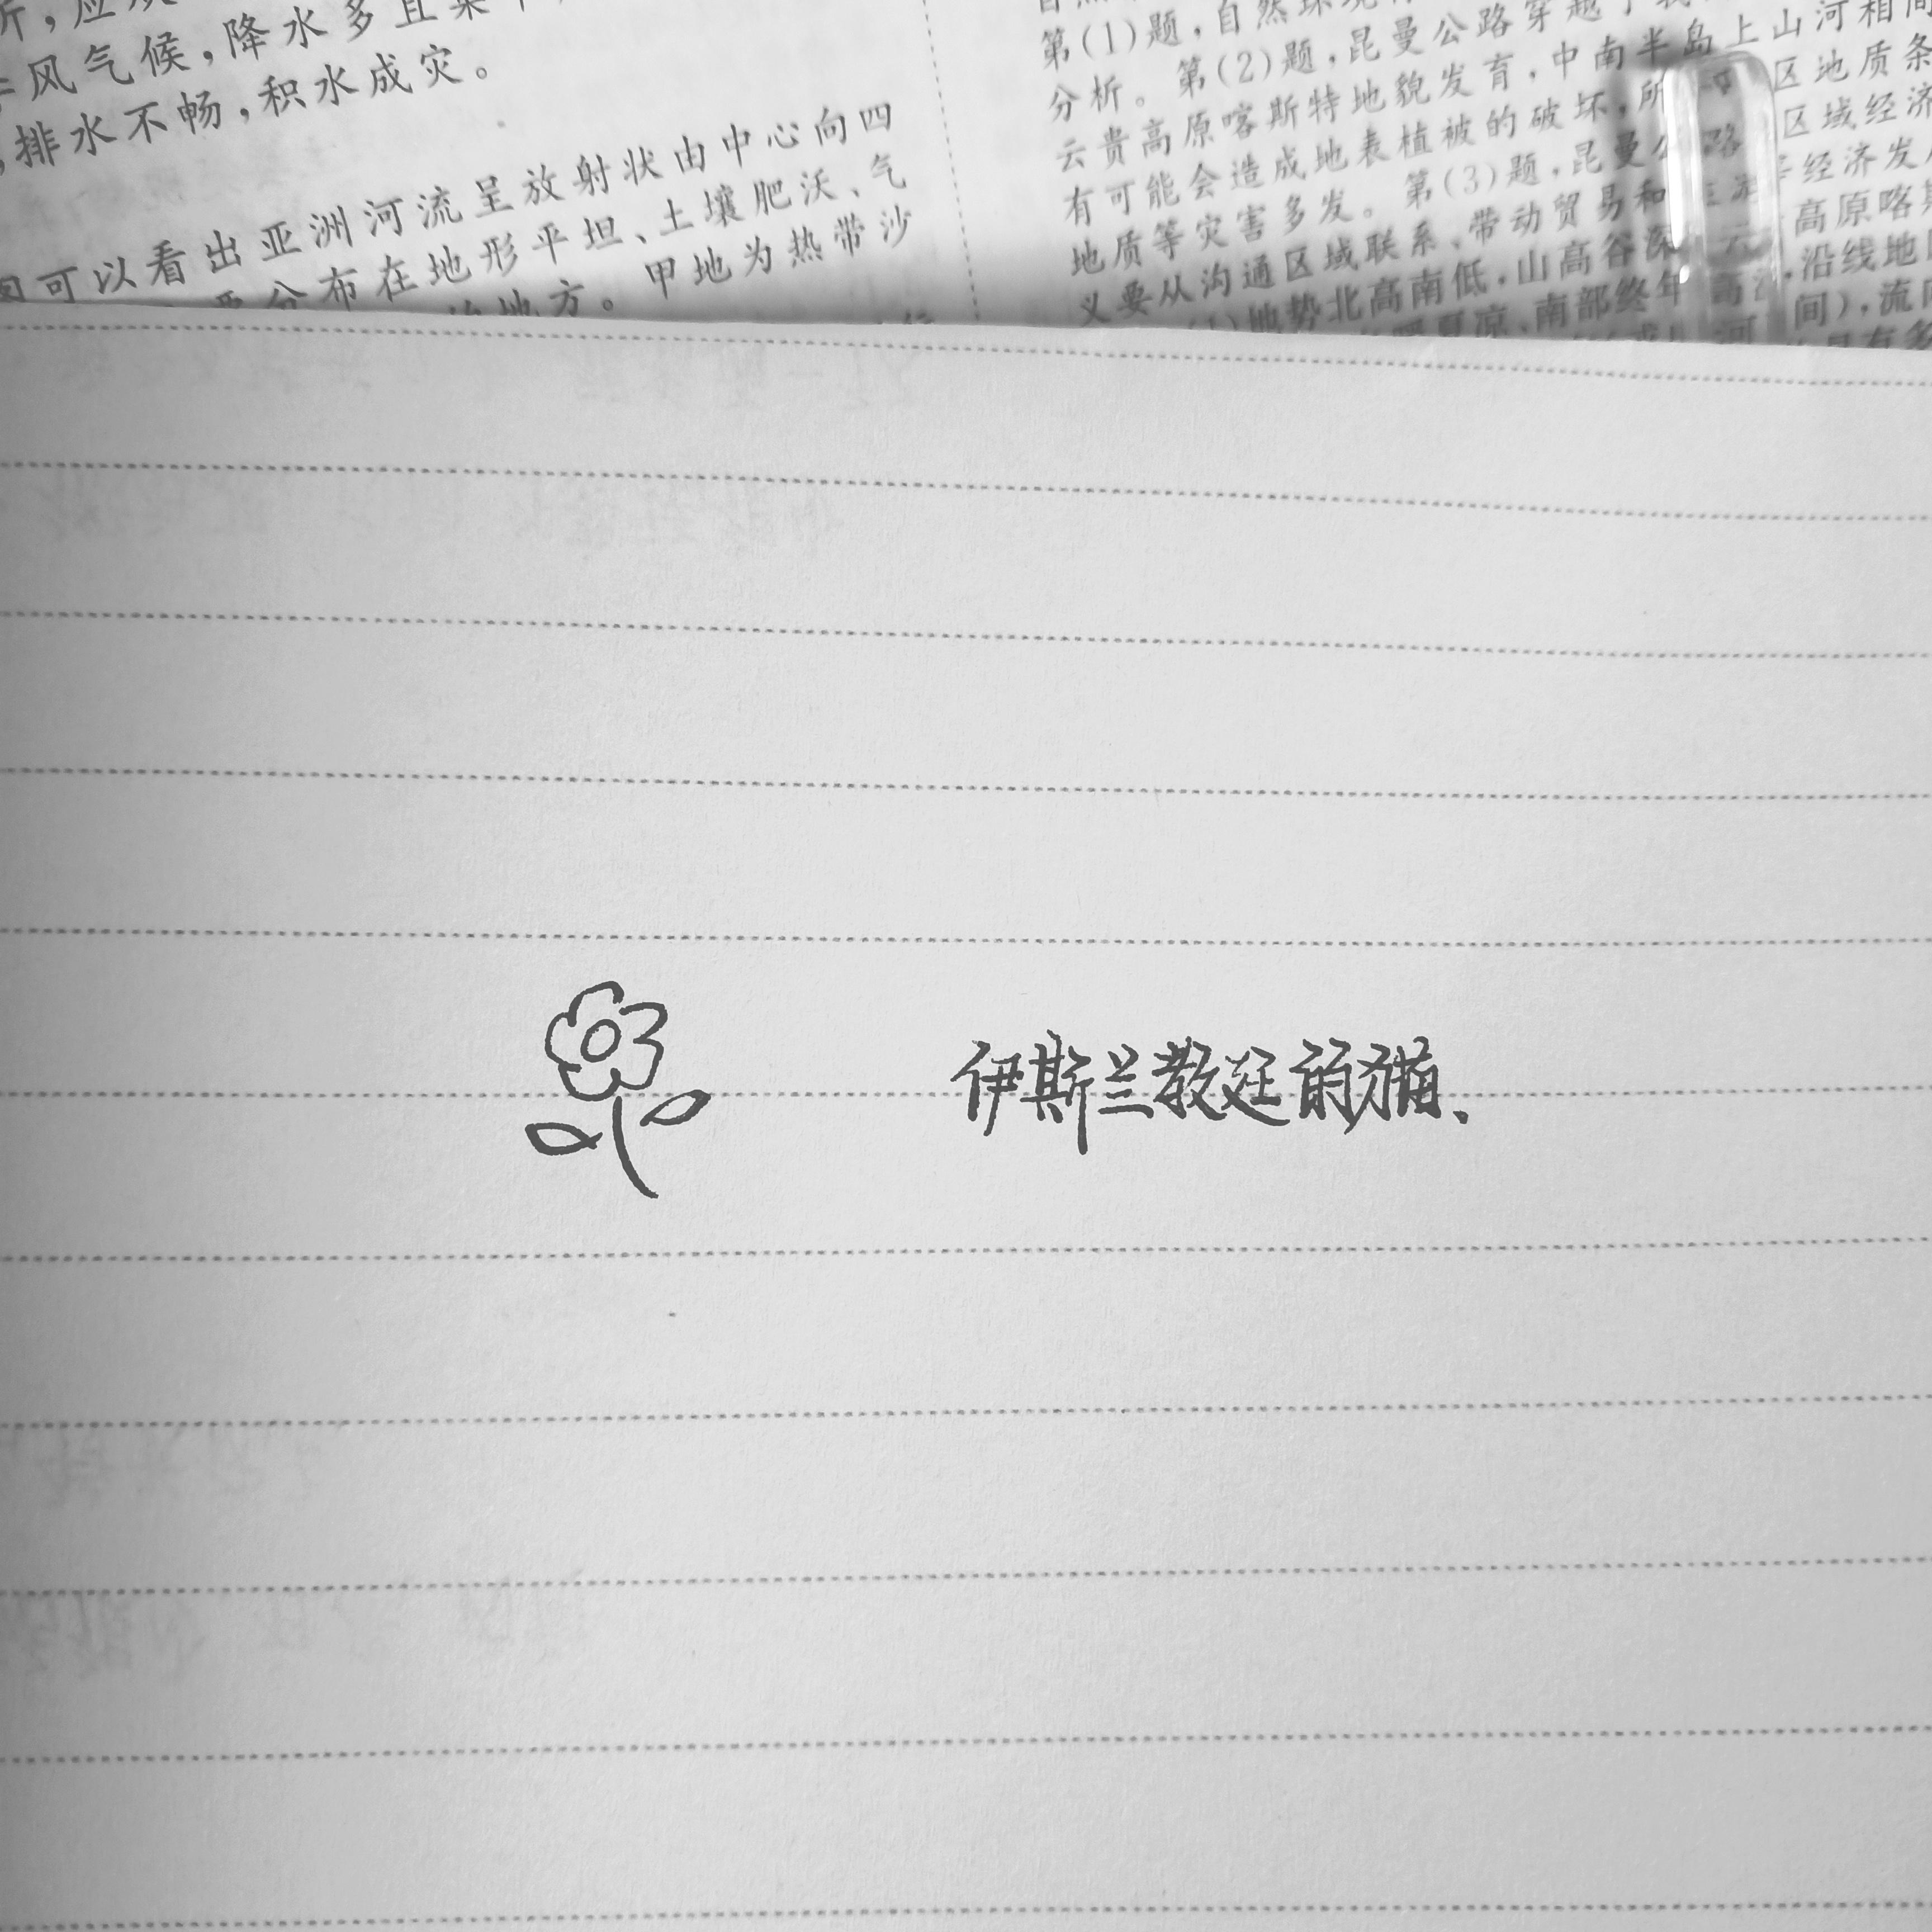 季风气候,降水多且集
,排水不畅,积水成灾。
可以看出亚洲河流呈放射状由中心向四
分布在地形平坦、土壤肥沃、气
地方。甲地为热带沙
第(1)题,自然环境
分析。第(2)题,昆曼公路穿越
云贵高原喀斯特地貌发育,中南半岛上山河相间
有可能会造成地表植被的破坏,所 区地质条
地质等灾害多发。第(3)题,昆曼公路 区域经济
义要从沟通区域联系、带动贸易和 经济发
地势北高南低,山高谷深 云 高原喀斯
夏凉、南部终年高 ,沿线地
河 间),流
伊斯兰教廷的猫、